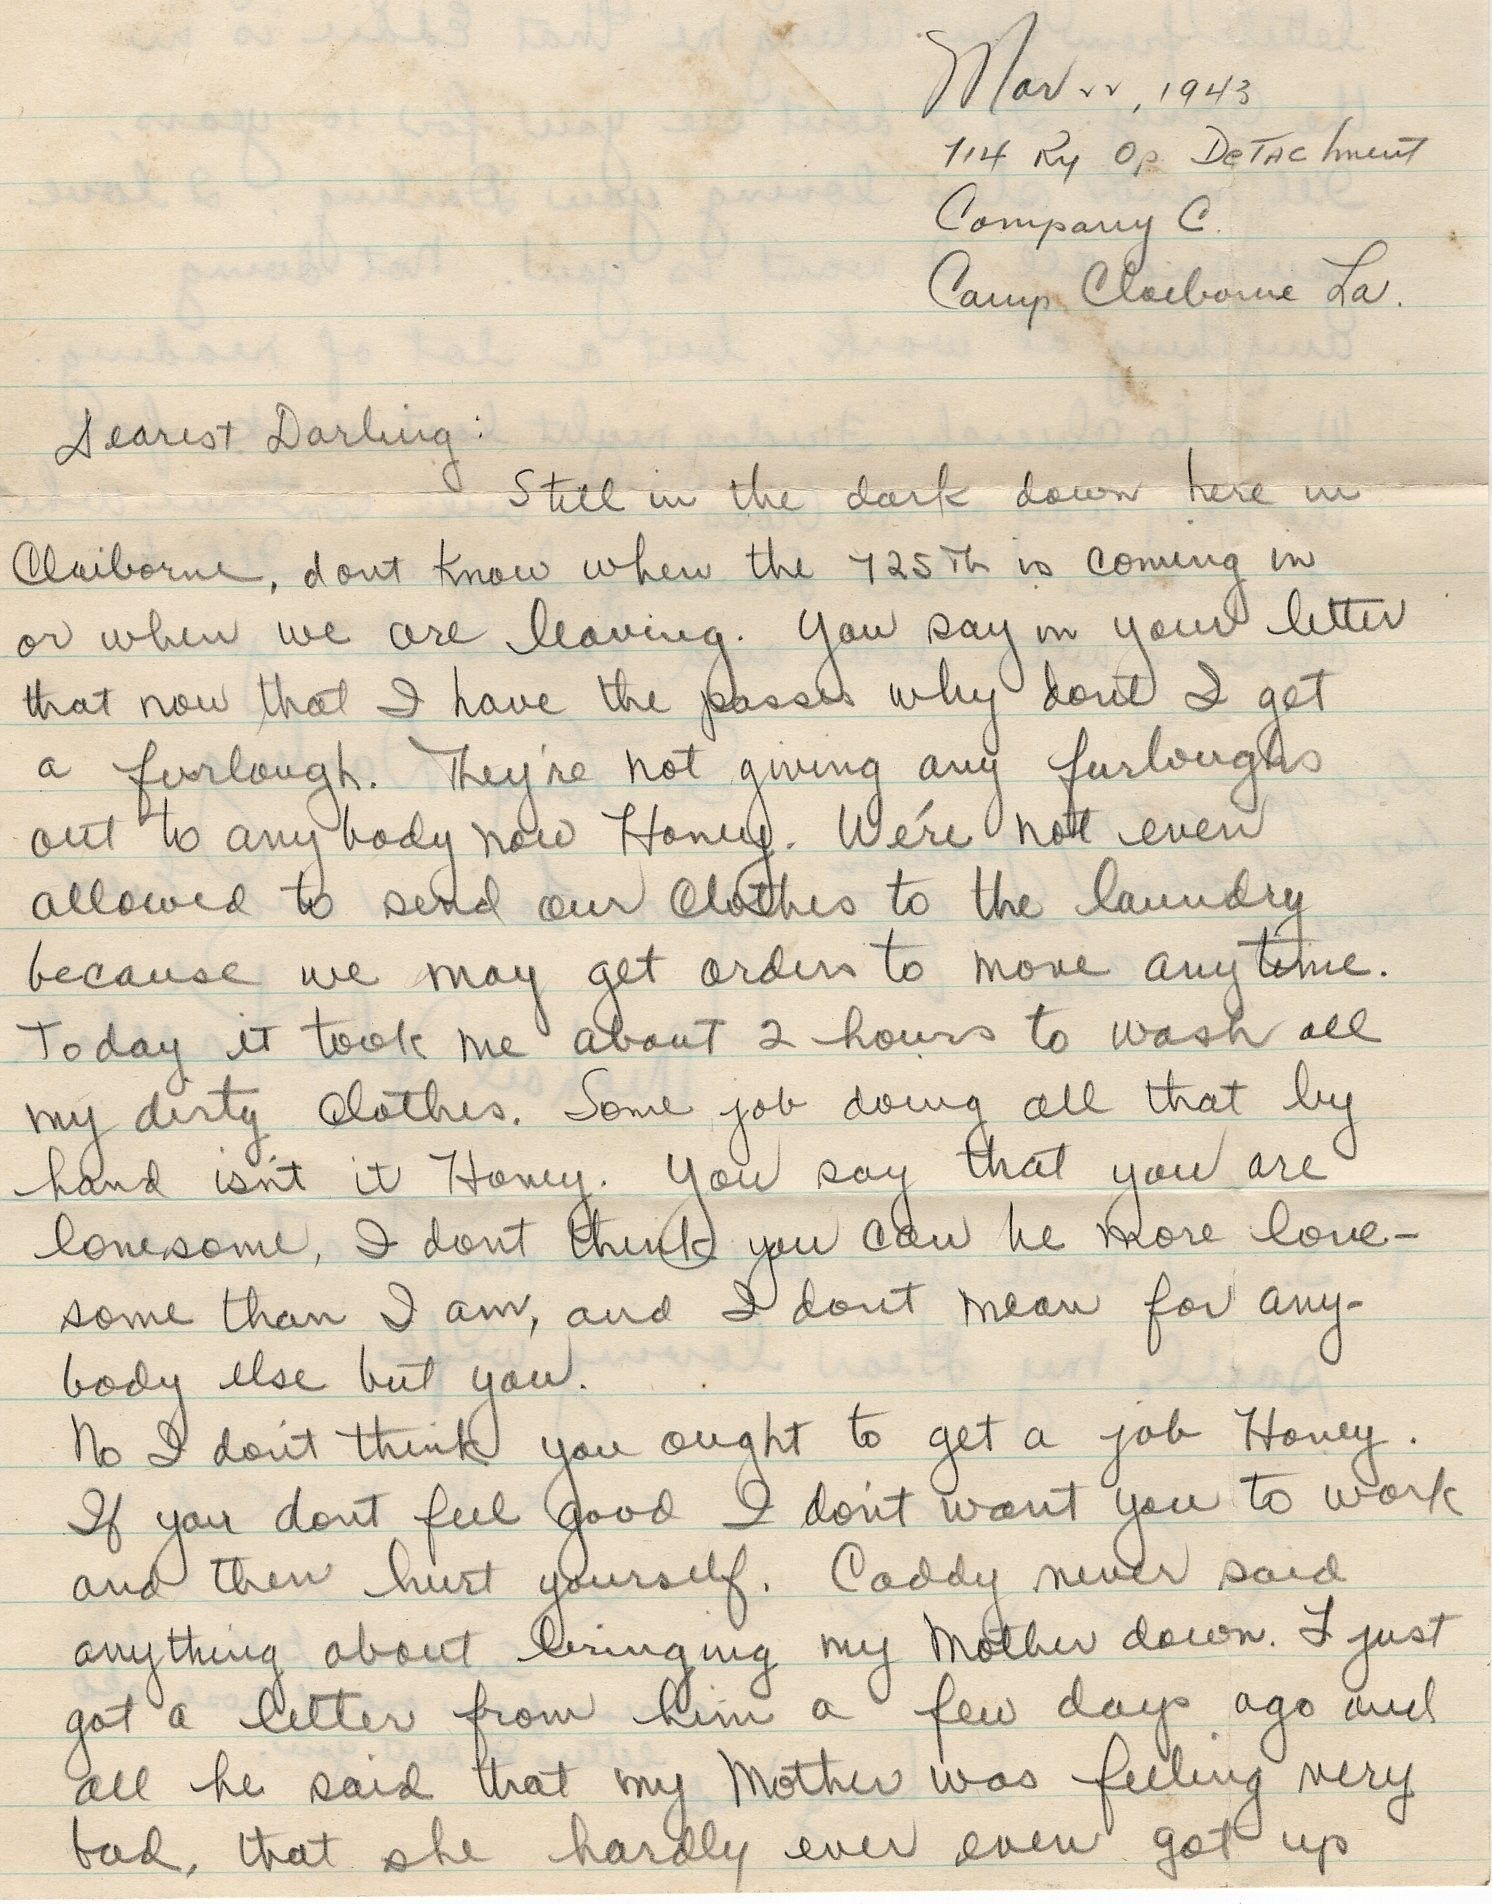 Mar 22, 1943
714 Ry Op Detachment
Company C.
Camp Claiborne La.
Dearest Darling:
Still in the dark down here in
Claiborne, dont know when the 725Th is coming in
or when we are leaving. You say in your letter
that now that I have the passes why dont I get
a furlough. They're not giving any furloughs
out to anybody now Honey. We're not even
allowed to send our clothes to the laundry
because we may get orders to move anytime.
Today it took me about 2 hours to wash all
my dirty clothes. Some job doing all that by
hand isn't it Honey. You say that you are
lonesome, I dont think you can be more lone-
some than I am, and I don't mean for any-
body else but you.
No I don't think you ought to get a job Honey.
If you dont feel good I don't want you to work
and then hurt yourself. Caddy never said
anything about bringing my Mother down. I just
got a letter from him a few days ago and
all he said that my Mother was feeling very
bad, that she hardly ever even got up